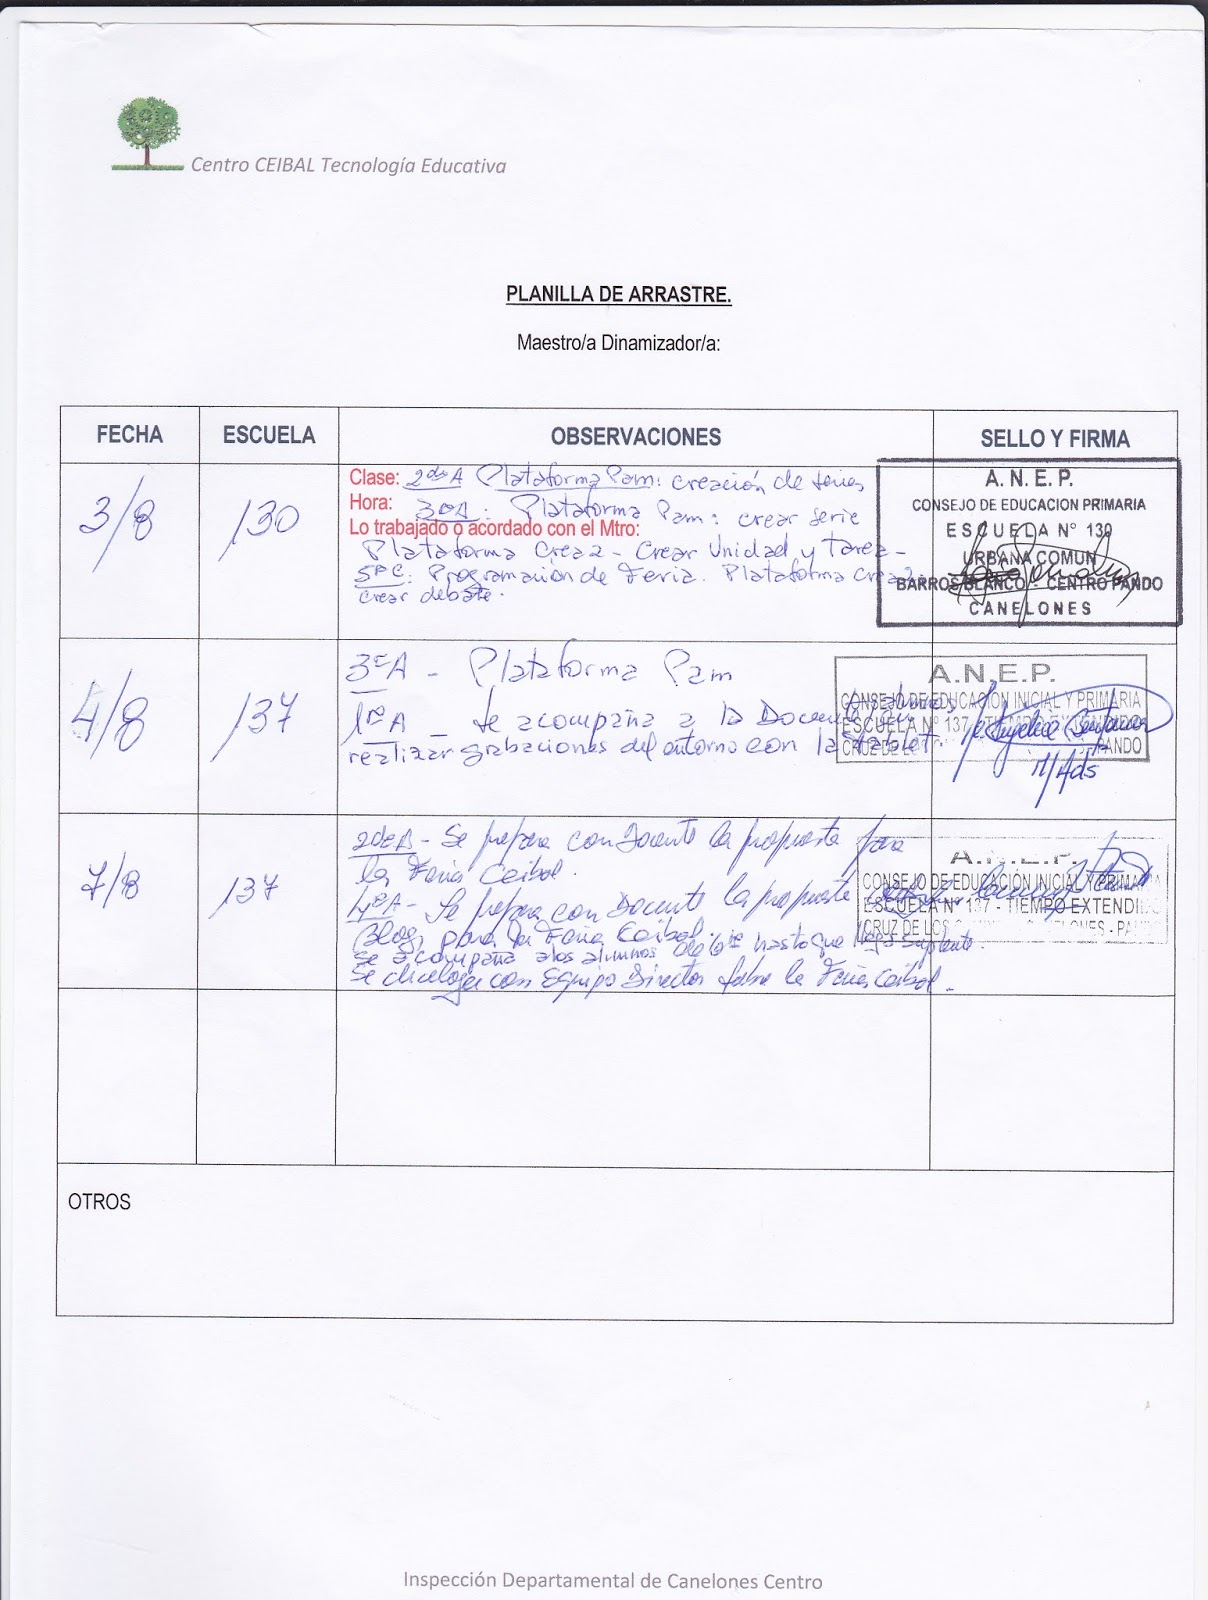 Centro CEIBAL Tecnología Educativa
PLANILLA DE ARRASTRE.
Maestro/a Dinamizador/a:
FECHA ESCUELA OBSERVACIONES SELLO Y FIRMA
3/8 130
Clase: 2do A Plataforma Pam: creación de series
Hora: 3o A: Plataforma Pam: crear serie
Lo trabajado o acordado con el Mtro:
Plataforma Crea2 - Crear Unidad y Tarea -
5º C: Programación de Feria. Plataforma Crea2:
crear debate.
A. N. E. P.
CONSEJO DE EDUCACION PRIMARIA
ESCUELA N° 130
URBANA COMUN
BARROS BLANCO - CENTRO PANDO
CANELONES
4/8 137
3er A - Plataforma Pam
1er A - Se acompaña a la Docente
realizar grabaciones del entorno con la tablet.
A.N.E.P.
CONSEJO DE EDUCACIÓN INICIAL Y PRIMARIA
ESCUELA N° 137 - TIEMPO
CRUZ DE L PANDO
M/Ads
7/8 137
2do A - Se prepara con Docente la propuesta para
la Feria Ceibal.
4to A - Se prepara con Docente la propuesta
Blog para la Feria Ceibal.
Se acompaña a los alumnos de 6to hasta que llega suplente.
Se dialoga con Equipo Director sobre la Feria Ceibal.
A.N.E.P.
CONSEJO DE EDUCACIÓN INICIAL Y PRIMARIA
ESCUELA N° 137 - TIEMPO EXTENDID
CRUZ DE LOS
OTROS
Inspección Departamental de Canelones Centro